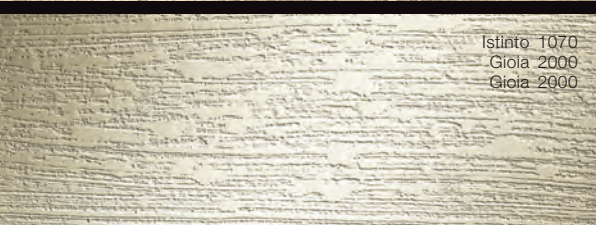 Istinto 1070
Gioia 2000
Gioia 2000